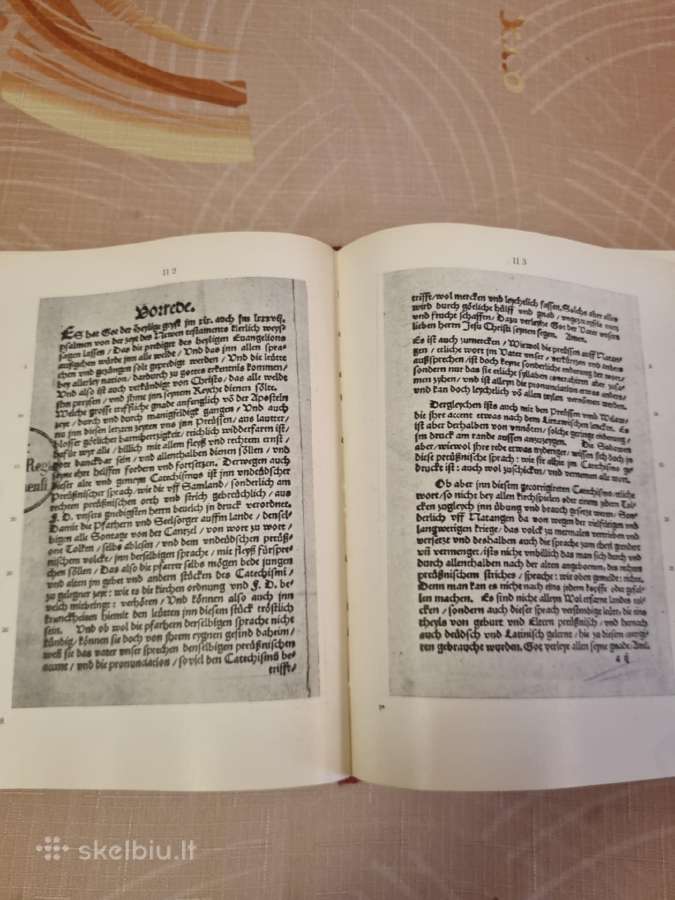 II 2
Vorrede.
ES hat Got der heylige geyst jm xix. auch jm lxxxvij.
psalmen von der zeyt des Newen testaments klerlich weyß
sagen lassen / Das die prediget des heyligen Evangelions
außgehen würde jnn alle welde / Vnd das jnn allen spra
chen vnd gezüngen solt geprediget werden / Vnd die leütte
bey allerley nation / dardurch zu Gottes erkentnis kommen /
Vnd also ist auch verkündigt von Christo / das alle welde
jhn preysen / vnd jhme jnn seynem Reyche dienen sölte.
Welche grosse trefliche gnade anfenglich võ der Aposteln
zeyt / durch vnd durch manigfeldig gangen / Vnd auch
nu jnn diesen letzten zeyten vns jnn Preüssen / aus lautter /
blosser götlicher barmhertzigkeit / reichlich widderfaren ist /
dafür wyr alle / billich mit allem fleyß vnd rechtem ernst /
Got danckbar sein / vnd allenthalben dienen söllen / vnd
seyne ehre helffen fordern vnd fortsetzen. Derwegen auch
dieser alte vnd gemeyne Catechismus ist jnn vndeüdscher
Preüßnischer sprach / wie die vff Samland / sonderlich am
rechten preüßnischen orth vnd strich gebreüchlich / aus
F. D. vnsers gnedigsten herren beuelch jn druck verordnet.
Damit die Pfarhern vnd Seelsorger auffm lande / densel-
ben alle Sontage von der Cantzel / von wort zu wort /
one Tolken / selbs ablesen / vnd dem vndeüdschen preüß-
nischen volcke / jnn derselbigen sprache / mit fleyß fürspre-
chen söllen / Das also die pfarrer selbs mögen bede jungen
vnd altenn jm gebet vnd andern stücken des Catechismi /
zu gelegner zeyt : wie es die kirchen ordnung vnd F. D. be
uelch mitbringt : verhören / Vnd können also auch jnn
kranckheiten hiemit den leütten jnn diesem stück tröstlich
sein. Vnd ob wol die pfarhern derselbigen sprache nicht
kündig / können sie doch von jhrem eygnen gesind daheim /
weil sie das vater vnser sprechen denselbigen preüßnischen
accent / vnd die pronunctiation / so viel den Catechismũ be
trifft /
II 3
trifft / wol mercken vnd leychtlich fassen. Solchs aber alles
wird durch götliche hülff vnd gnad /
vnd frucht schaffen / Dazu verleyhe Got der Vater vnsers
lieben herrn Jesu Christi seynen segen. Amen.
Es ist auch zumercken / Wiewol die Preüssen auff Natan-
etliche wort jm Vater vnser / verkürtzen vnd anders
außsprechen / ist doch keyne sonderliche enderung der wort /
sonder nur das sie etliche syllaben
zyhen / vnd ist alleyn die pronunctiation etwas anders /
vnd kan doch leychtlich võ allen vernommen werden.
Dergleychen ists auch mit den Preüssen vnd
die jhre accent etwas nach dem Littawischen lencken. Es
ist aber derhalben von vnnöten / solche geringe enderung /
jm druck am rande aussen anzuzeygen. Die Sudawen
aber / wiewol jhre rede etwas nyderiger / wissen sich doch jn
diese preüßnische sprach : wie sie alhie jm Catechismo ge
druckt ist : auch wol zuschicken / vnd vernemen alle wort.
Ob aber jnn diesem gecorrigirten Catechismo / etliche
wort / so nicht bey allen kirchspielen oder jnn jedem Tol-
cken zugleych jnn übung vnd brauch gesetzt weren. Son
derlich vff Natangen da von wegen der vielfeltigen vnd
langwerigen kriege / das volck zu mermalen vertrieben vnd
versetzt vnd deshalben auch die sprach zum theyl geendert
vñ vermenget / ists nicht vnbillich das man sich durch vnd
durch allenthalben nach der alten angebornen / des rechten
preüßnischem striches / sprache : wie oben gemeldt : richte.
Denn man kan es nicht nach eins jeden kopffe oder gefal
len machen. Es sind nicht alleyn Wolerfarne landes tol
cken / sondern auch dieser sprach verstendige leütte / die eins
theyls von geburt vnd Eltern preüßnisch / vnd hernach
auch deüdsch vnd Latinisch gelernt / die zu diesem corrigi-
ren gebraucht wurden. Got verleye allen seyne gnade / Amẽ.
skelbiu.lt